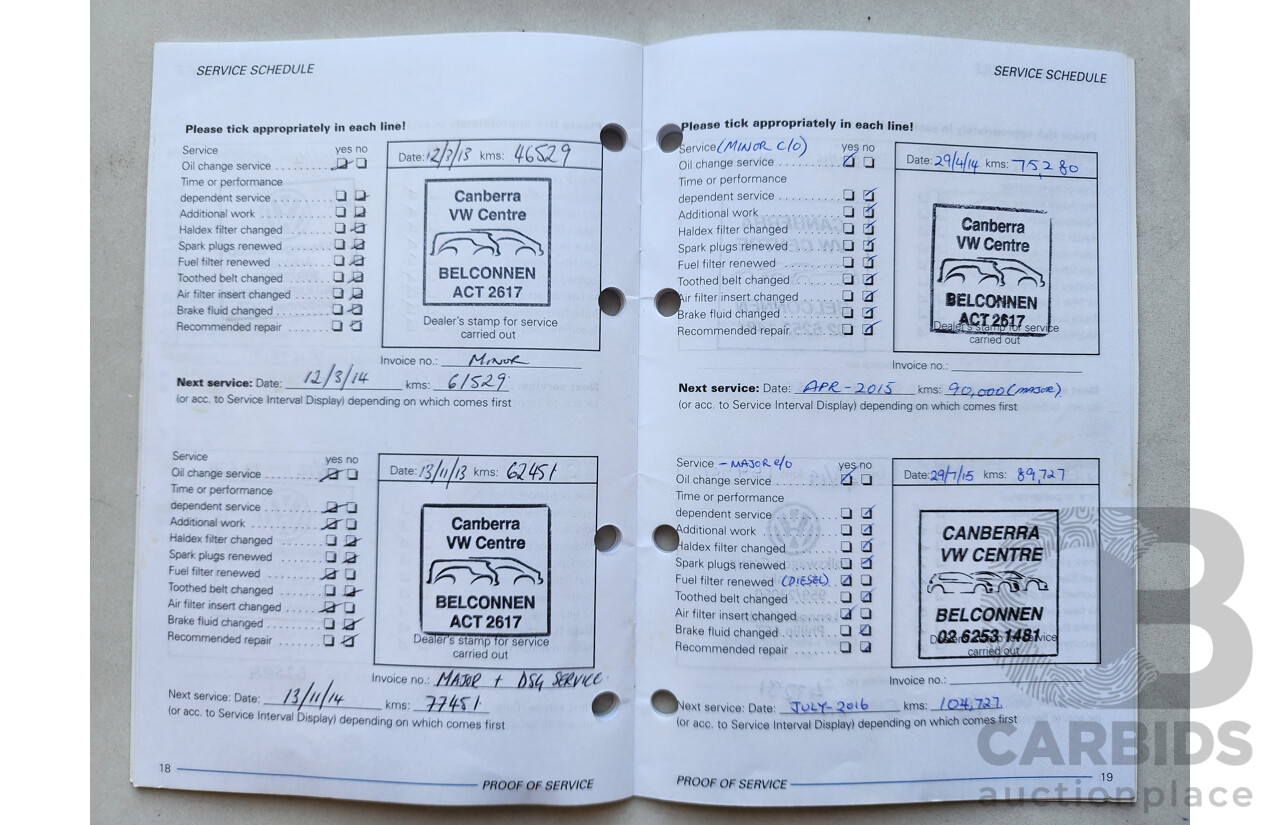 SERVICE SCHEDULE
Please tick appropriately in each line!
Service yes no
Oil change service
Time or performance
dependent service
Additional work
Haldex filter changed
Spark plugs renewed
Fuel filter renewed
Toothed belt changed
Air filter insert changed
Brake fluid changed
Recommended repair
Date: 12/3/13 kms: 46529
Canberra
VW Centre
BELCONNEN
ACT 2617
Dealer's stamp for service
carried out
Invoice no.: MINOR
Next service: Date: 12/3/14 kms: 61529
(or acc. to Service Interval Display) depending on which comes first
Service yes no
Oil change service
Time or performance
dependent service
Additional work
Haldex filter changed
Spark plugs renewed
Fuel filter renewed
Toothed belt changed
Air filter insert changed
Brake fluid changed
Recommended repair
Date: 13/11/13 kms: 62451
Canberra
VW Centre
BELCONNEN
ACT 2617
Dealer's stamp for service
carried out
Invoice no.: MAJOR + DSG SERVICE
Next service: Date: 13/11/14 kms: 77451
(or acc. to Service Interval Display) depending on which comes first
18
PROOF OF SERVICE
SERVICE SCHEDULE
Please tick appropriately in each line!
Service (MINOR C/O) yes no
Oil change service
Time or performance
dependent service
Additional work
Haldex filter changed
Spark plugs renewed
Fuel filter renewed
Toothed belt changed
Air filter insert changed
Brake fluid changed
Recommended repair
Date: 29/4/14 kms: 75,280
Canberra
VW Centre
BELCONNEN
ACT 2617
Dealer's stamp for service
carried out
Invoice no.:
Next service: Date: APR-2015 kms: 90,000 (MAJOR)
(or acc. to Service Interval Display) depending on which comes first
Service - MAJOR C/O yes no
Oil change service
Time or performance
dependent service
Additional work
Haldex filter changed
Spark plugs renewed
Fuel filter renewed (DIESEL)
Toothed belt changed
Air filter insert changed
Brake fluid changed
Recommended repair
Date: 29/7/15 kms: 89,727
CANBERRA
VW CENTRE
BELCONNEN
02 6253 1481
Dealer's stamp for service
carried out
Invoice no.:
Next service: Date: JULY-2016 kms: 104,727
(or acc. to Service Interval Display) depending on which comes first
PROOF OF SERVICE
19
CARBIDS
auctionplace